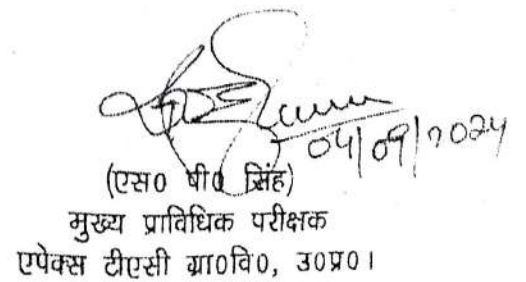 04/09/2024
(एस0 पी0 सिंह)
मुख्य प्राविधिक परीक्षक
एपेक्स टीएसी ग्रा0वि0, उ0प्र0।